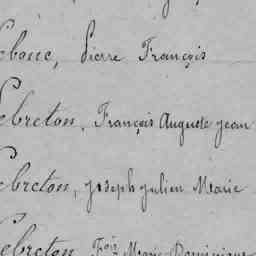 ebouc, Pierre François
ebreton, François Auguste jean
ebreton, joseph julien Marie
ebreton, Fois Marie Dominique